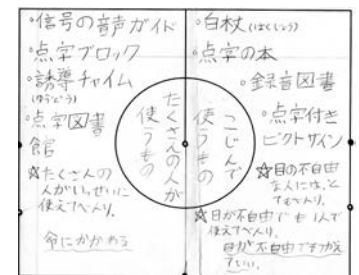 ・信号の音声ガイド
・点字ブロック
・誘導チャイム
(ゆうどう)
・点字図書
館
☆たくさんの
人がいっせいに
使えてべんり。
命にかかわる
たくさんの人が
使うもの
・白杖(はくじょう)
・点字の本
・録音図書
・点字付き
ピクトサイン
こじんで
使うもの
☆目の不自由
な人には、と
てもべんり。
☆目が不自由でも1人で
使えてべんり。
目が不自由でもつかえ
ていい。